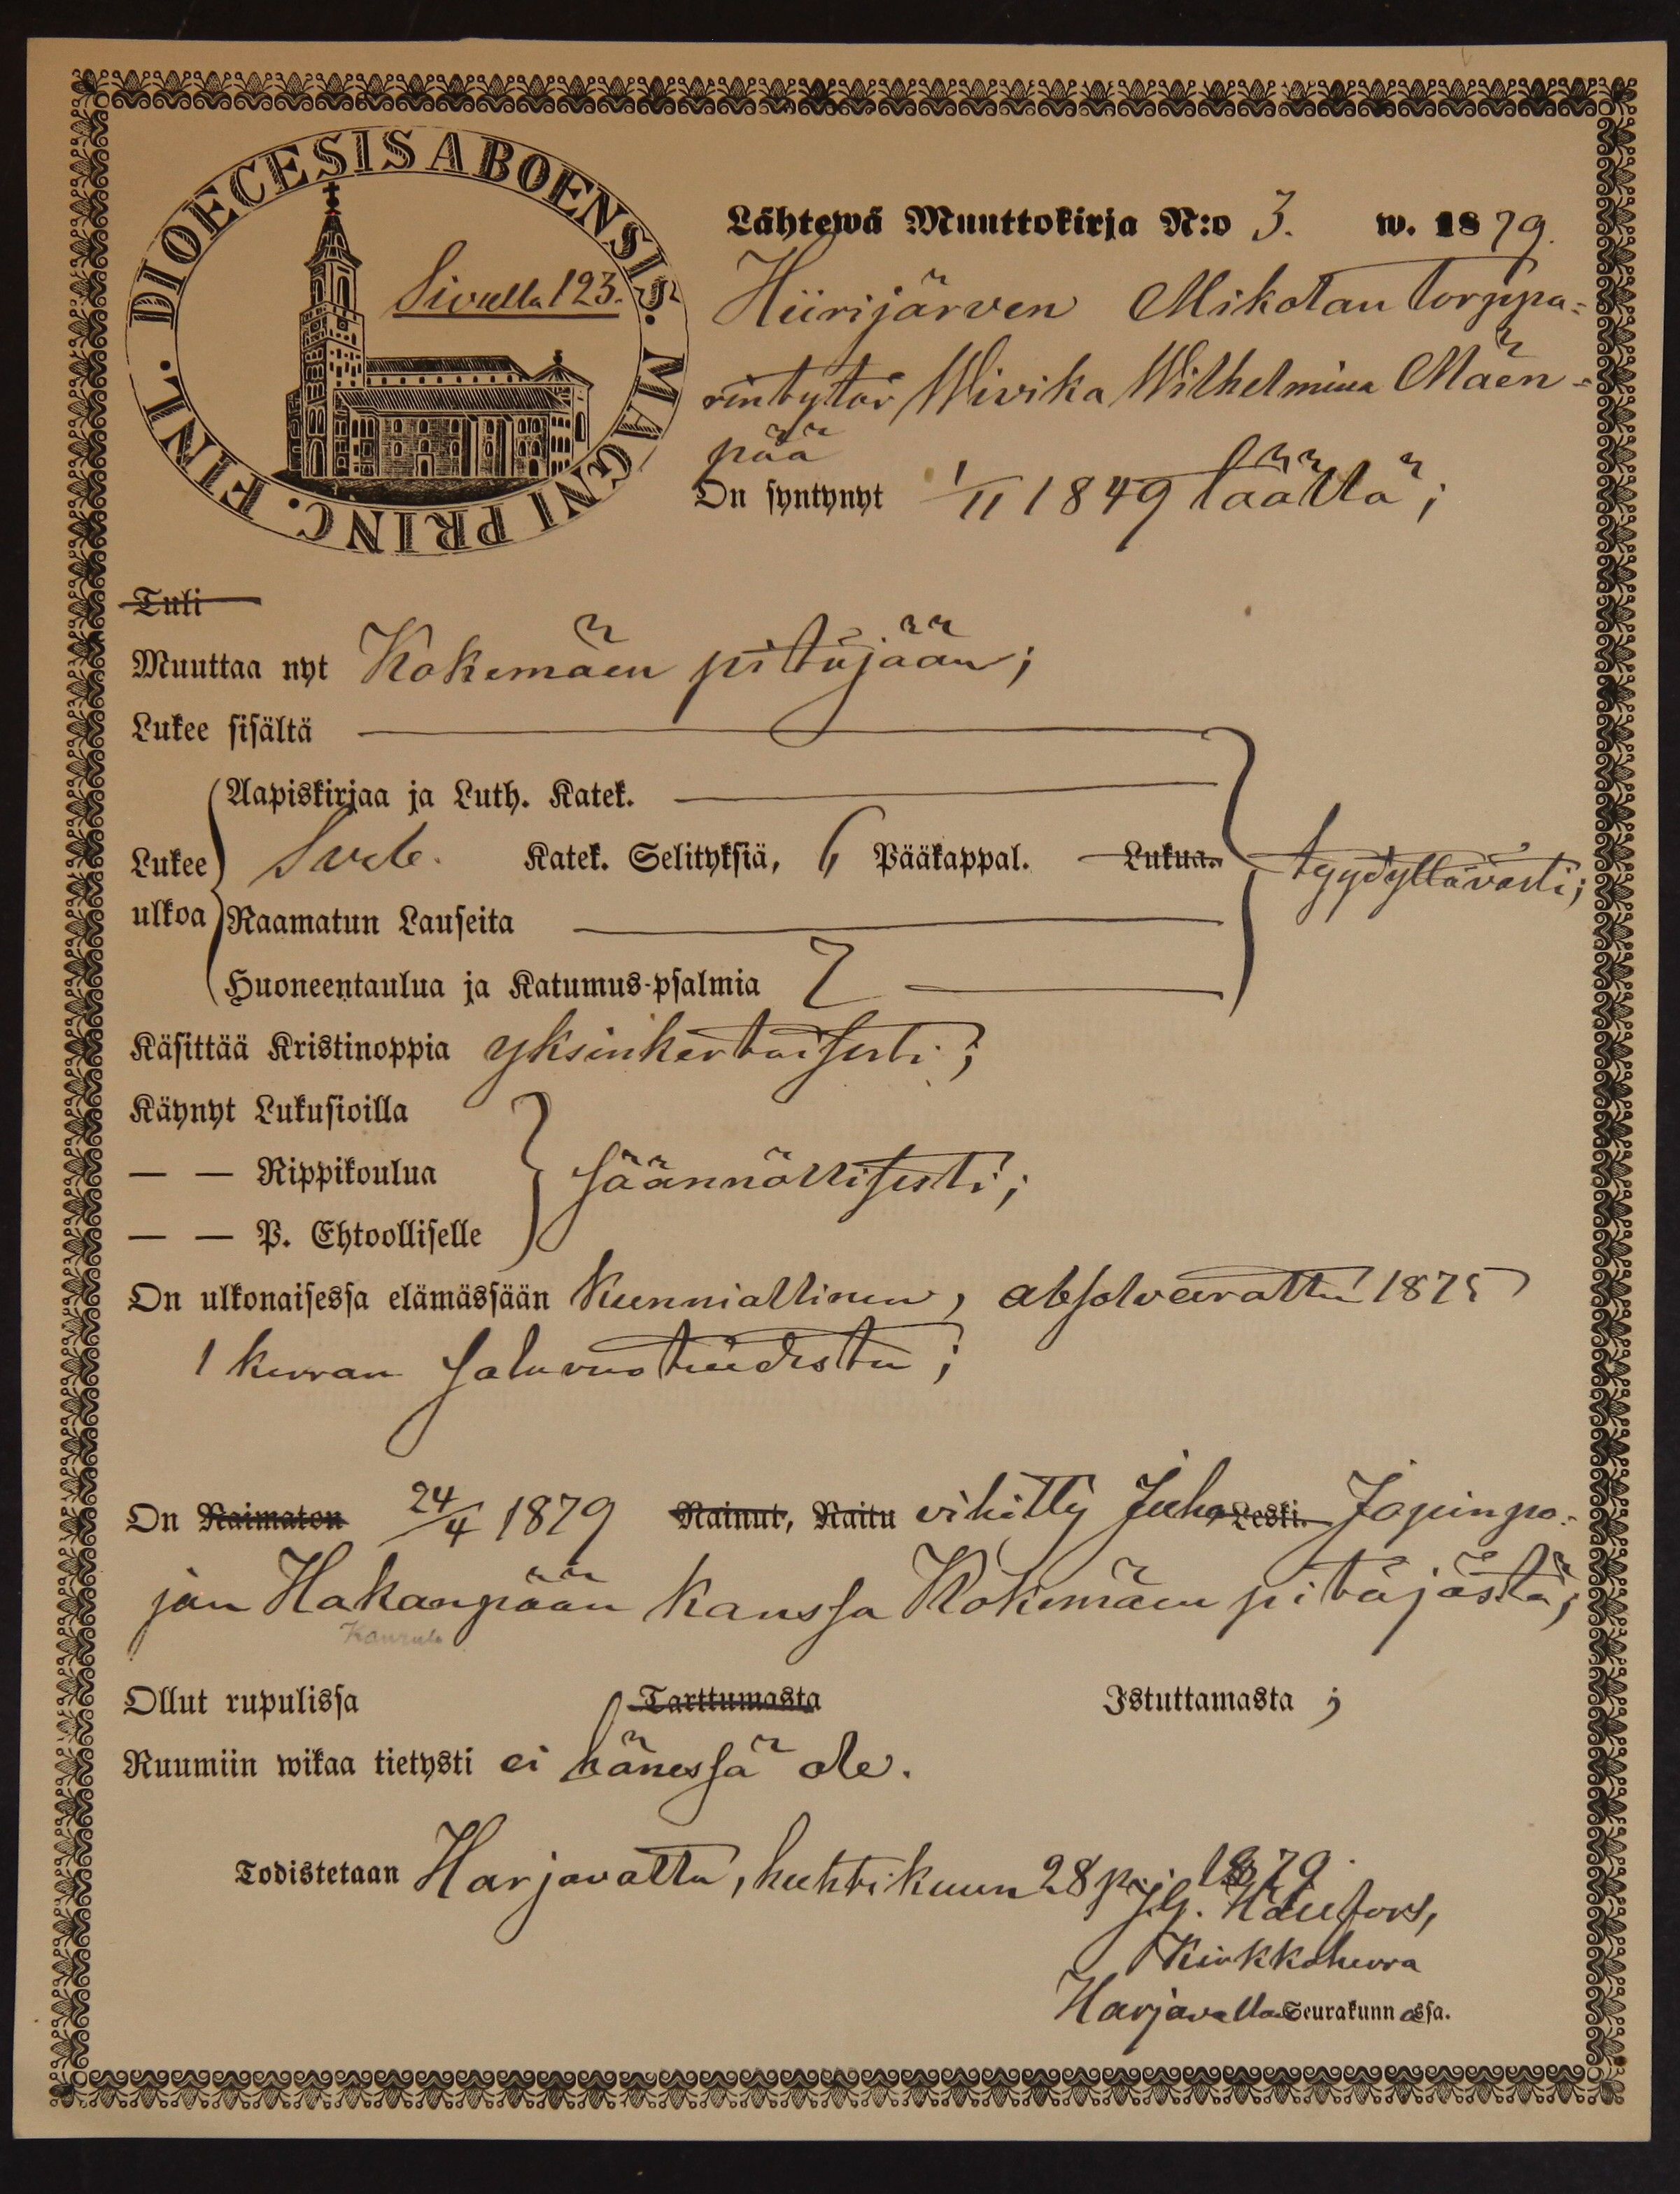 DIOECESIS ABOENSIS. MAGNI PRINC. FINL.
Sivulla 123.
Lähtewä Muuttokirja N:o 3. w. 1879.
Hiirijärven Mikolan torppa-
rintytär Wivika Wilhelmina Mäen-
pää
On syntynyt 1/11 1849 täällä;
Tuli
Muuttaa nyt Kokemäen pitäjään;
Lukee sisältä
Aapiskirjaa ja Luth. Katek.
Lukee ulkoa Sveb. Katek. Selityksiä, 6 Pääkappal. Lukua.
tyydyttävästi;
Raamatun Lauseita
Huoneentaulua ja Katumus-psalmia 7
Käsittää Kristinoppia yksinkertaisesti;
Käynyt Lukusioilla
— — Rippikoulua säännöllisesti;
— — P. Ehtoolliselle
On ulkonaisessa elämässään kunniallinen, absolveerattu 1875
1 kerran salavuoteudesta;
On Raimaton 24/4 1879 Nainut, Naitu vihitty Juho Leski. Jopinpo-
jan Hakanpään kanssa Kokemäen pitäjästä;
Ollut rupulissa Tarttumasta Istuttamasta ;
Ruumiin wikaa tietysti ei hänessä ole.
Todistetaan Harjavalta, huhtikuun 28 p. 1879.
Kirkkoherra
Harjavallan Seurakunnassa.